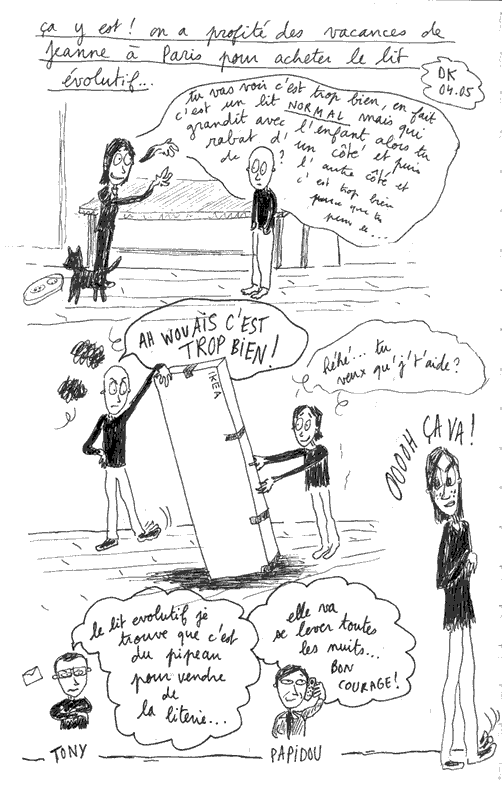 ça y est ! on a profité des vacances de
Jeanne à Paris pour acheter le lit
évolutif...
DK
04.05
tu vas voir c'est trop bien, en fait
c'est un lit NORMAL mais qui
grandit avec l'enfant alors tu
rabat d'un côté et puis
de l'autre côté et
c'est trop bien
parce que tu
peux le...
?
AH WOUAIS C'EST
TROP BIEN !
IKEA
héhé... tu
veux qu'j't'aide ?
OOOOH ÇA VA !
le lit evolutif je
trouve que c'est
du pipeau
pour vendre
de
la literie...
elle va
se lever toutes
les nuits...
BON
COURAGE !
TONY
PAPIDOU